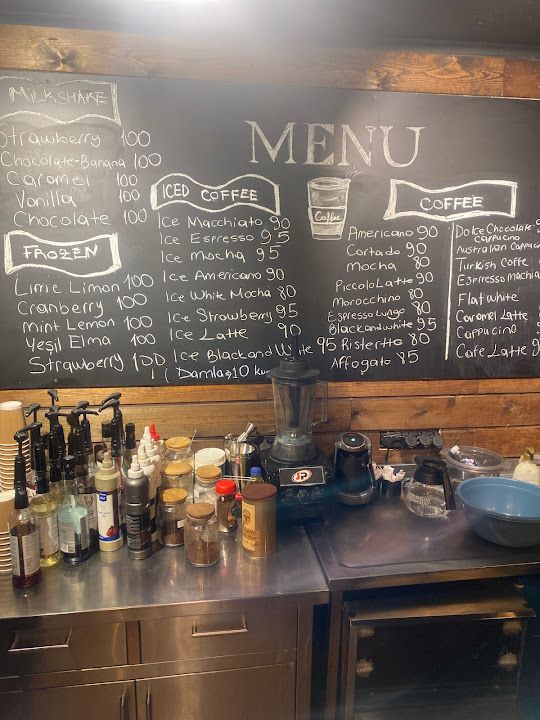 MILKSHAKE
Strawberry 100
Chocolate-Banana 100
Caramel 100
Vanilla 100
Chocolate 100
FROZEN
Lime Limon 100
Cranberry 100
mint Lemon 100
Yeşil Elma 100
Strawberry 100
MENU
ICED COFFEE
Ice Macchiato 90
Ice Espresso 95
Ice mocha 95
Ice Americano 90
Ice White Mocha 80
Ice Strawbery 95
Ice Latte 90
Ice Black and White 95
(Damla 10
Coffee
COFFEE
Americano 90
Cortado 90
mocha 80
Piccolo Latte 90
morocchino 80
Espresso Lungo 80
Black and white 95
Ristertto 80
Affogato 85
Dolce Chocolate
Cappucino
Australian Cappucino
Turkish Coffe
Espresso machia
Flat white
Caramel Latte
Cappucino
Cafe Latte 9